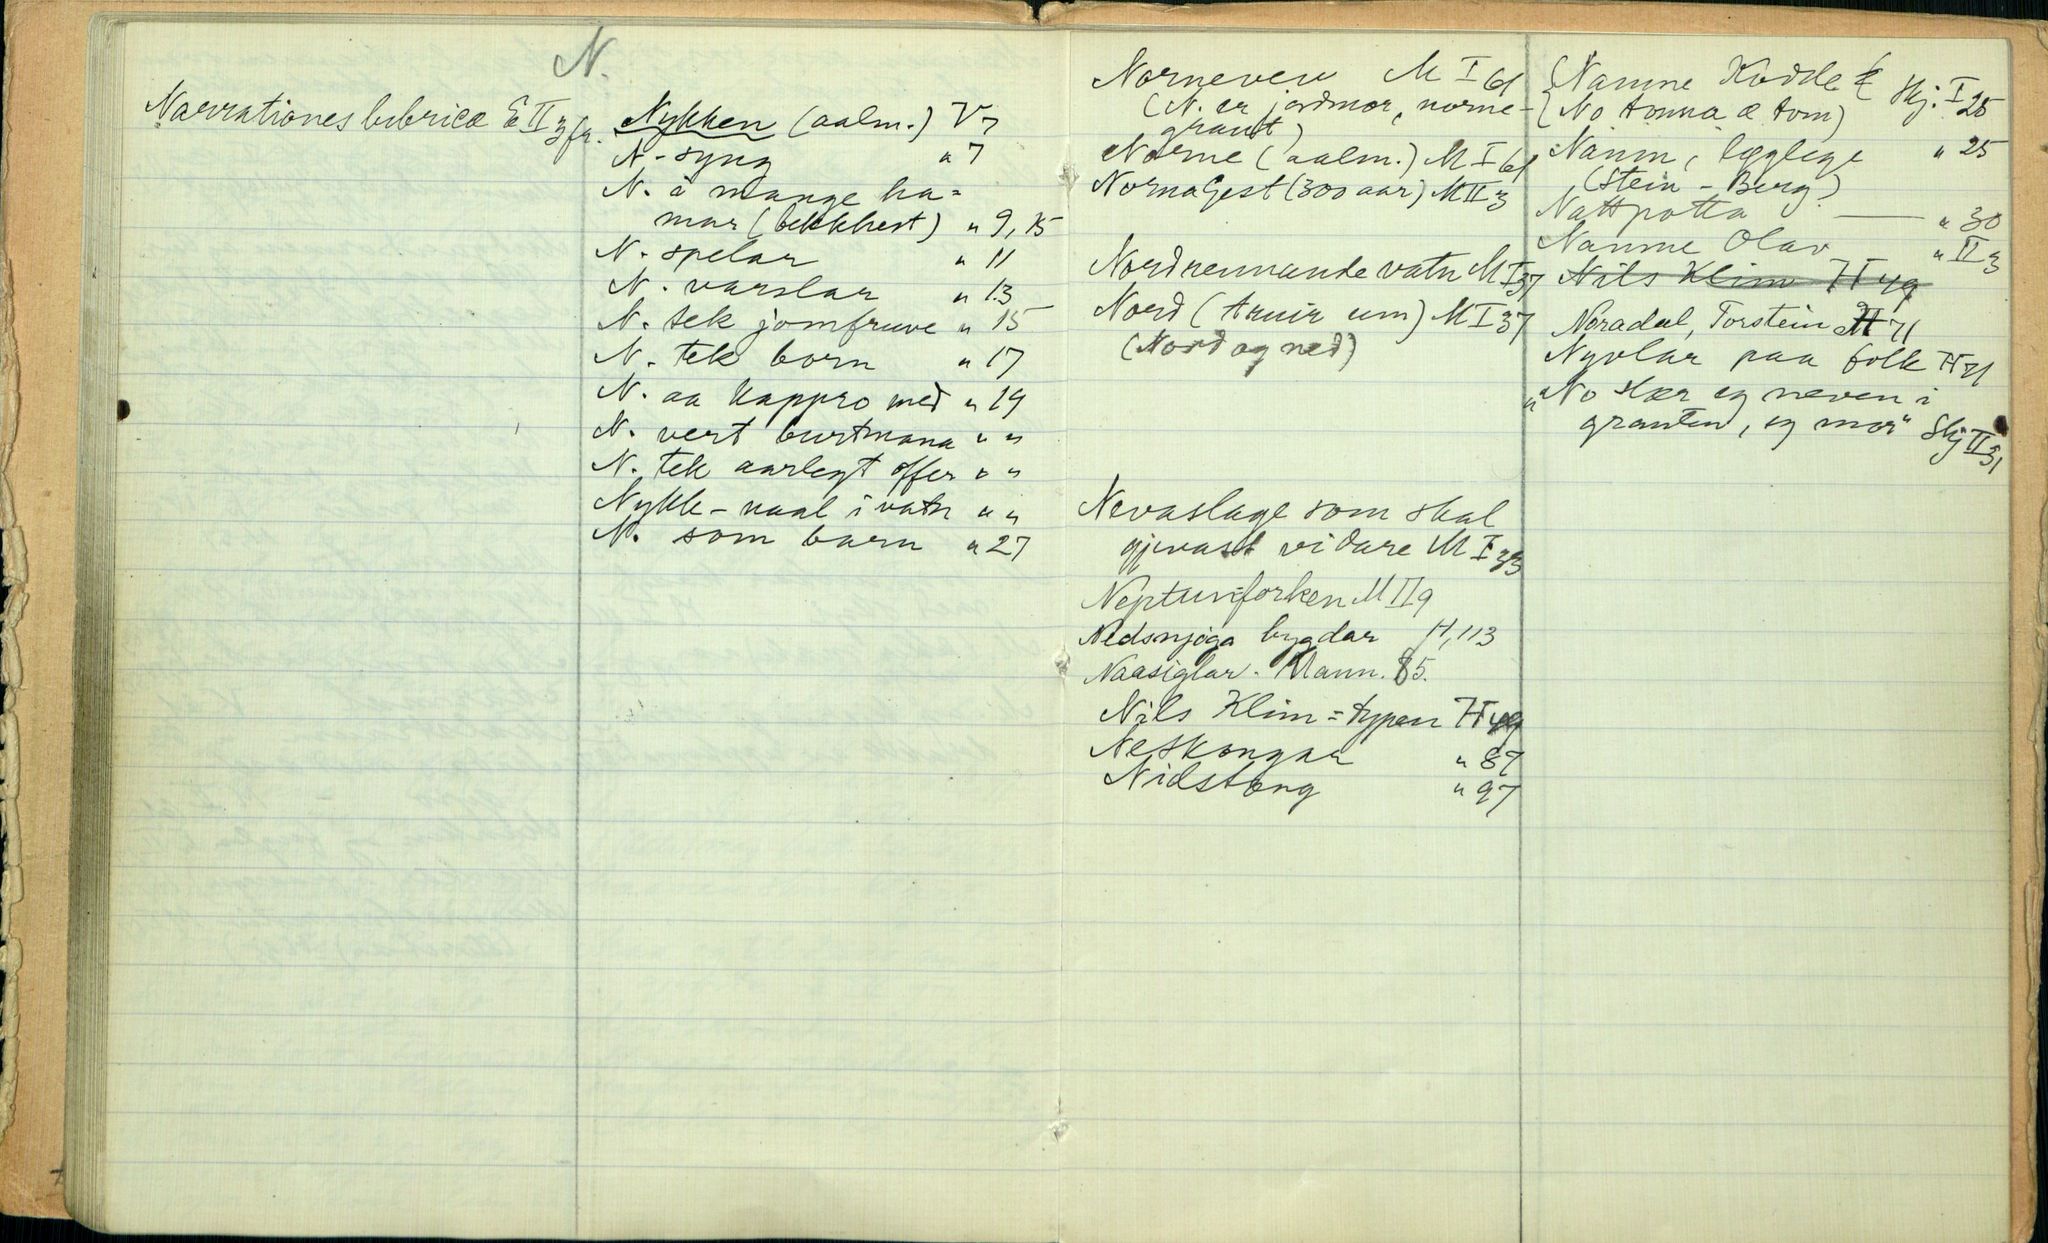 N.
Narrationes lubricæ E II 3 fr.
Nykken (aalm.) V 7
N - syng " 7
N. i mange ha=
mar (bekkhest) " 9, 15
N. spelar " 11
N. varslar " 13
N. tek jomfruve " 15
N. tek born " 17
N. aa kappro med " 19
N. vert burtmana " "
N. tek aarlegt offer " "
Nykk - naal i vatn " "
N. som barn " 27
Norneven M I 61
(N. er jordmor, norne-
graut)
Norne (aalm.) M I 61
Nornagest (300 aar) M II 3
Nordrennande vatn M I 37
Nord (truir um) M I 37
(Nord og ned)
Nevaslage som skal
gjevast vidare M I 33
Neptunforken M II 9
Nedsnjoga bygdar H, 113
Naasiglar. Mann. 85.
Nils Klim = typen H 49
Neskongar " 87
Nidstong " 97
Namne Kodde Skj. I 25
(No tonna æ tom)
Namn, læglege " 25
(Stein - Berg)
Nattpotta — " 30
Namne Olav " II 3
Nils Klim H 49
Noradal, Torstein H 71
Nyvlar paa folk H 71
"No slær eg neven i
grauten, eg mor" Skj II 31